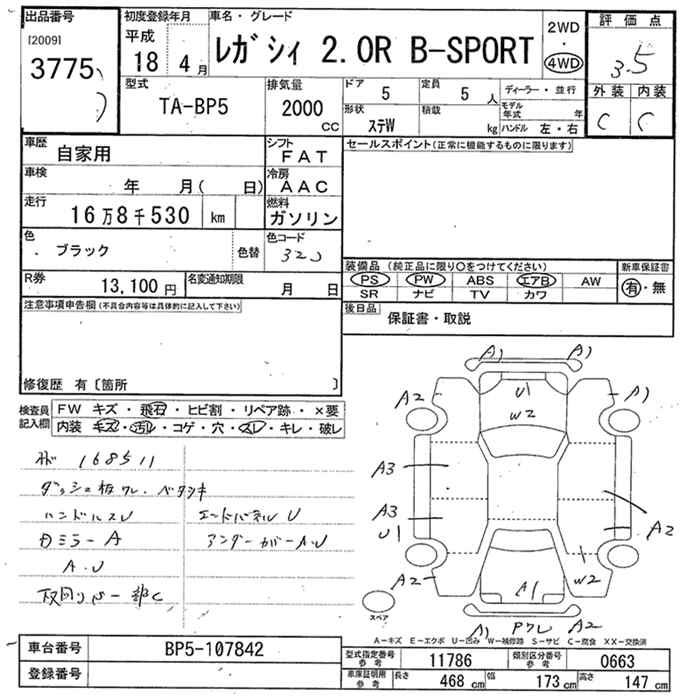 出品番号
[2009]
3775
初度登録年月
平成
18年 4月
車名・グレード
レガシィ 2.0R B-SPORT
2WD
・
4WD
評価点
3.5
外装 内装
C C
型式
TA-BP5
排気量
2000
CC
ドア
5
定員
5人
形状
ステW
積載
kg
ディーラー・並行
モデル年式 年
ハンドル 左・右
車歴
自家用
シフト
FAT
セールスポイント(正常に機能するものに限ります)
車検
年 月( 日)
冷房
AAC
走行
16万8千530 km
燃料
ガソリン
色
ブラック
色替
色コード
32J
R券
13,100円
名変通知期限
月 日
装備品 (純正品に限り○をつけてください)
PS PW ABS エアB AW
SR ナビ TV カワ
新車保証書
有・無
注意事項申告欄(不具合内容等は具体的に記入して下さい)
後日品
保証書・取説
修復歴 有〔箇所 〕
検査員記入欄
FW キズ・飛石・ヒビ割・リペア跡・×要
内装 キズ・汚れ・コゲ・穴・スレ・キレ・破レ
168511
ハンドルスレ
ミラーA
A.U
A1 A1
U1
W2
A2 A1
A3
A3
U1
A2
A2
W2
A1
A1 PワレA2
スペア
A-キズ E-エクボ U-凹み W-補修跡 S-サビ C-腐食 XX-交換済
車台番号
BP5-107842
登録番号
型式指定番号
参考
11786
類別区分番号
参考
0663
車庫証明用
参考
長さ
468 cm
幅
173 cm
高さ
147 cm